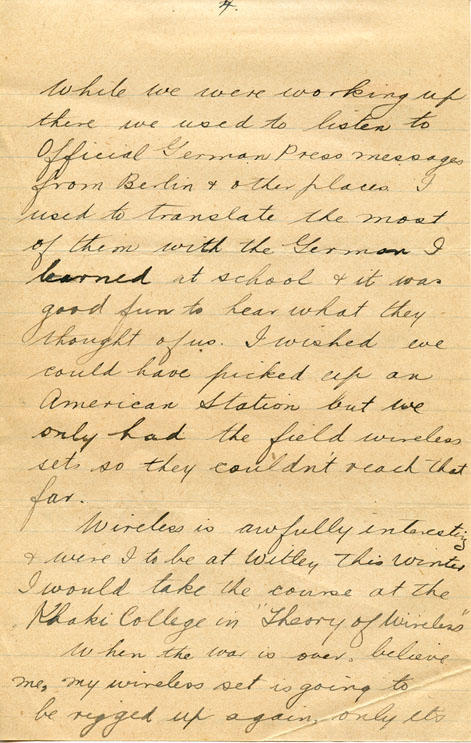 4.
While we were working up
there we used to listen to
Official German Press messages
from Berlin & other places. I
used to translate the most
of them with the German I
learned at school & it was
good fun to hear what they
thought of us. I wished we
could have picked up an
American Station but we
only had the field wireless
sets so they couldn't reach that
far.
Wireless is awfully interesting
& were I to be at Witley This Winter
I would take the course at the
Khaki College in "Theory of Wireless"
When the war is over, believe
me, my wireless set is going to
be rigged up again, only its